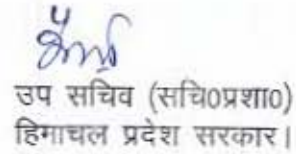 उप सचिव (सचि०प्रशा०)
हिमाचल प्रदेश सरकार।